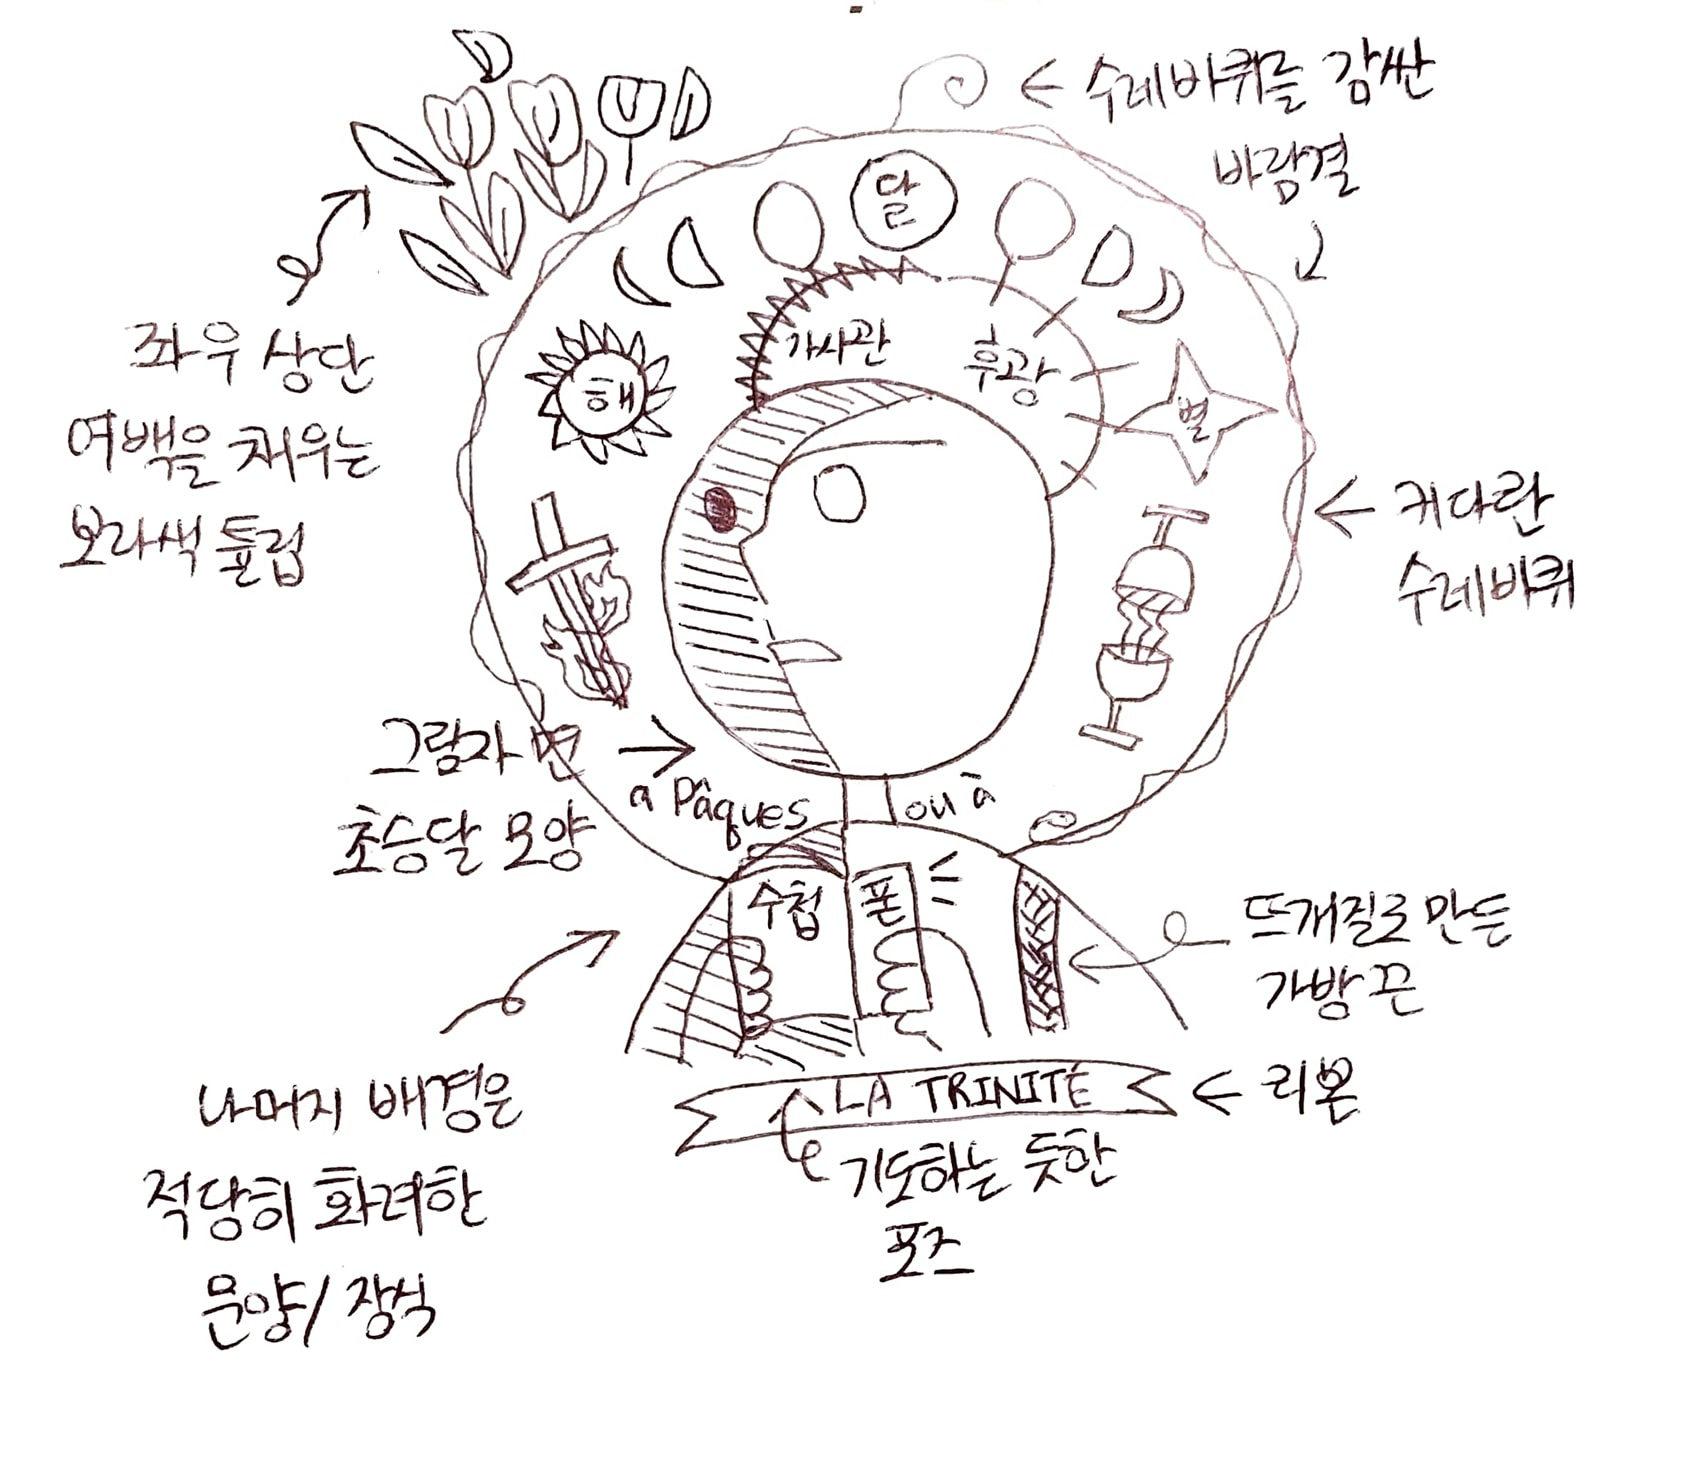 수레바퀴를 감싼
바람결
달
좌우 상단
여백을 채우는
보라색 튤립
해
가시관
후광
별
커다란
수레바퀴
그림자 면
초승달 모양
a Pâques
ou à
수첩
폰
뜨개질로 만든
가방 끈
나머지 배경은
적당히 화려한
문양/장식
LA TRINITÉ
리본
기도하는 듯한
포즈